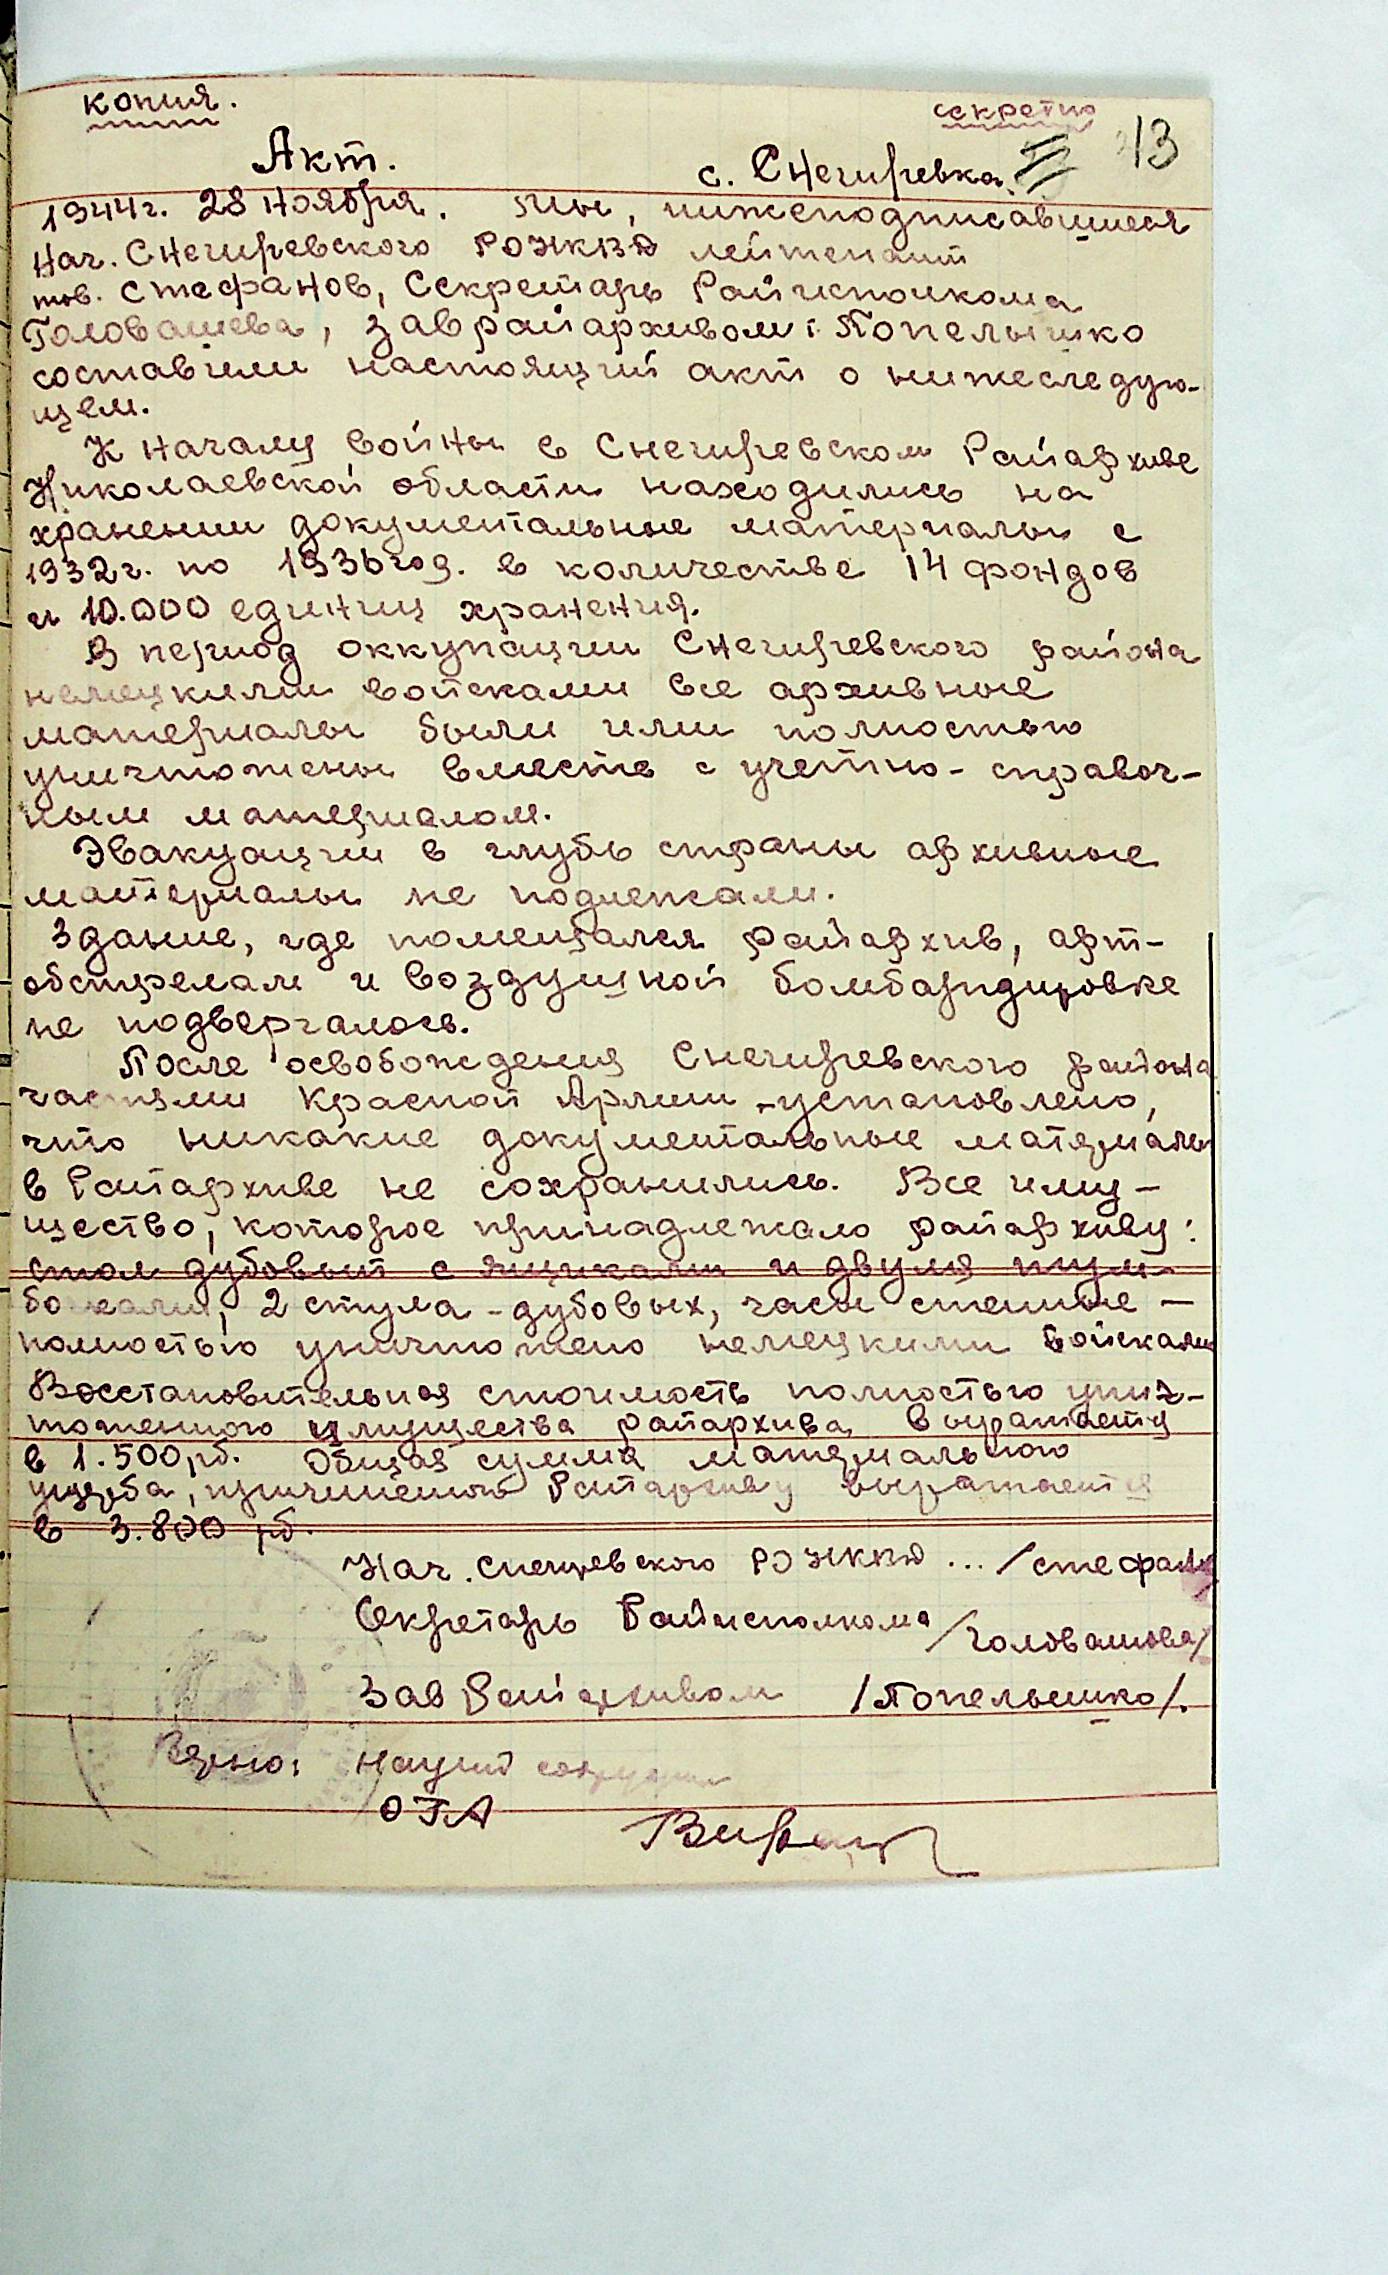 копия.
секретно
13
Акт.
с. Снегиревка.
1944г. 28 ноября. мы, нижеподписавшиеся
Нач. Снегиревского РОНКВД лейтенант
тов. Стефанов, Секретарь Райисполкома
Головашева, заврайархивом: Попельышко
составили настоящий акт о нижеследую-
щем.
К началу войны в Снегиревском Райархиве
Николаевской области находились на
хранении документальные материалы с
1932г. по 1936год. в количестве 14 фондов
и 10.000 единиц хранения.
В период оккупации Снегиревского района
немецкими войсками все архивные
материалы были ими полностью
уничтожены вместе с учетно-справоч-
ным материалом.
Эвакуации в глубь страны архивные
материалы не подлежали.
Здание, где помещался райархив, арт-
обстрелам и воздушной бомбардировке
не подвергалось.
После освобождения Снегиревского района
частями Красной Армии - установлено,
что никакие документальные материалы
в Райархиве не сохранились. Все иму-
щество, которое принадлежало райархиву:
стол дубовый с ящиками и двумя тум-
бочками, 2 стула - дубовых, часы стенные -
полностью уничтожено немецкими войсками
Восстановительная стоимость полностью унич-
тоженного имущества райархива выражается
в 1.500 рб. Общая сумма материального
ущерба, причиненного Райархиву выражается
в 3.800 рб.
Нач. Снегиревского РОНКВД ... /Стефанов
Секретарь Райисполкома /Головашова/
Зав Райархивом /Попельышко/.
Верно: Научный сотрудник
ОГА